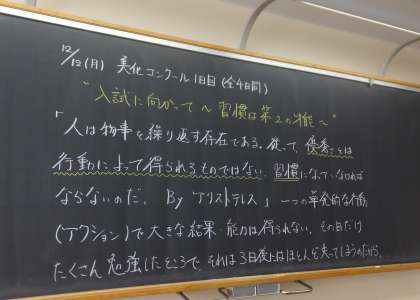 12/12(月) 美化コンクール1日目(全4日間)
"入試に向かって ～ 習慣は第2の才能 ～"
「人は物事を繰り返す存在である。従って、優秀さとは
行動によって得られるものではない. 習慣になっていなければ
ならないのだ. By アリストテレス」 一つの単発的な行動
(アクション)で大きな結果・能力は得られない. その日だけ
たくさん勉強したところで、それは3日後にはほとんど失ってしまうのだから。